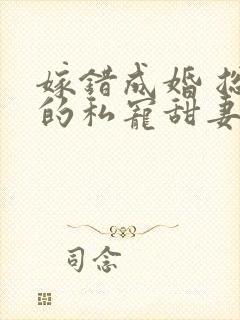 嫁错成婚
的私宠甜妻
司念